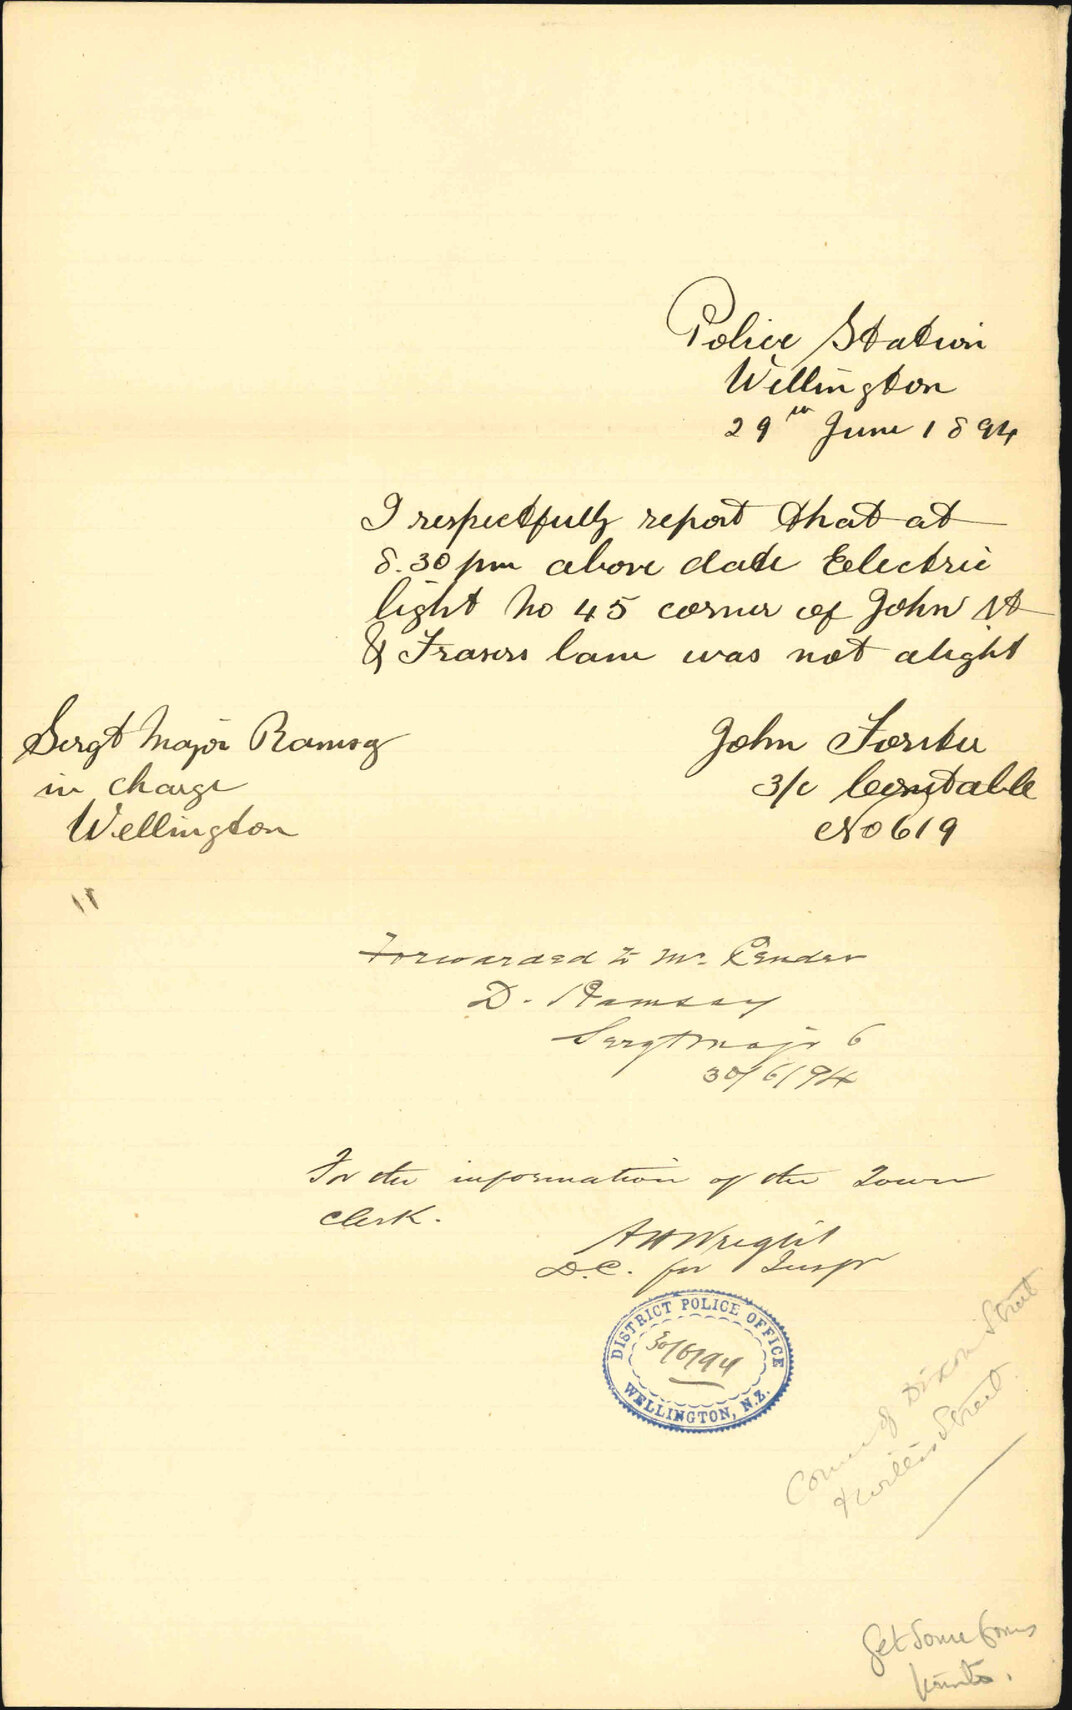 Police Station
Wellington
29th June 1894
I respectfully report that at
8.30 pm above date Electric
light No 45 corner of John St
& Frasers lane was not alight
Sergt Major Ramsay
in charge
Wellington
John Forster
3/c Constable
No 619
Forwarded to Mr. Pender
D. Ramsay
Sergt Majr 6
30/6/94
For the information of the Town
Clerk.
AH Wright
D.C. for Inspr
DISTRICT POLICE OFFICE
30/6/94
WELLINGTON, N.Z.
Corner of Dixon Street
& Willis Street
Get some forms